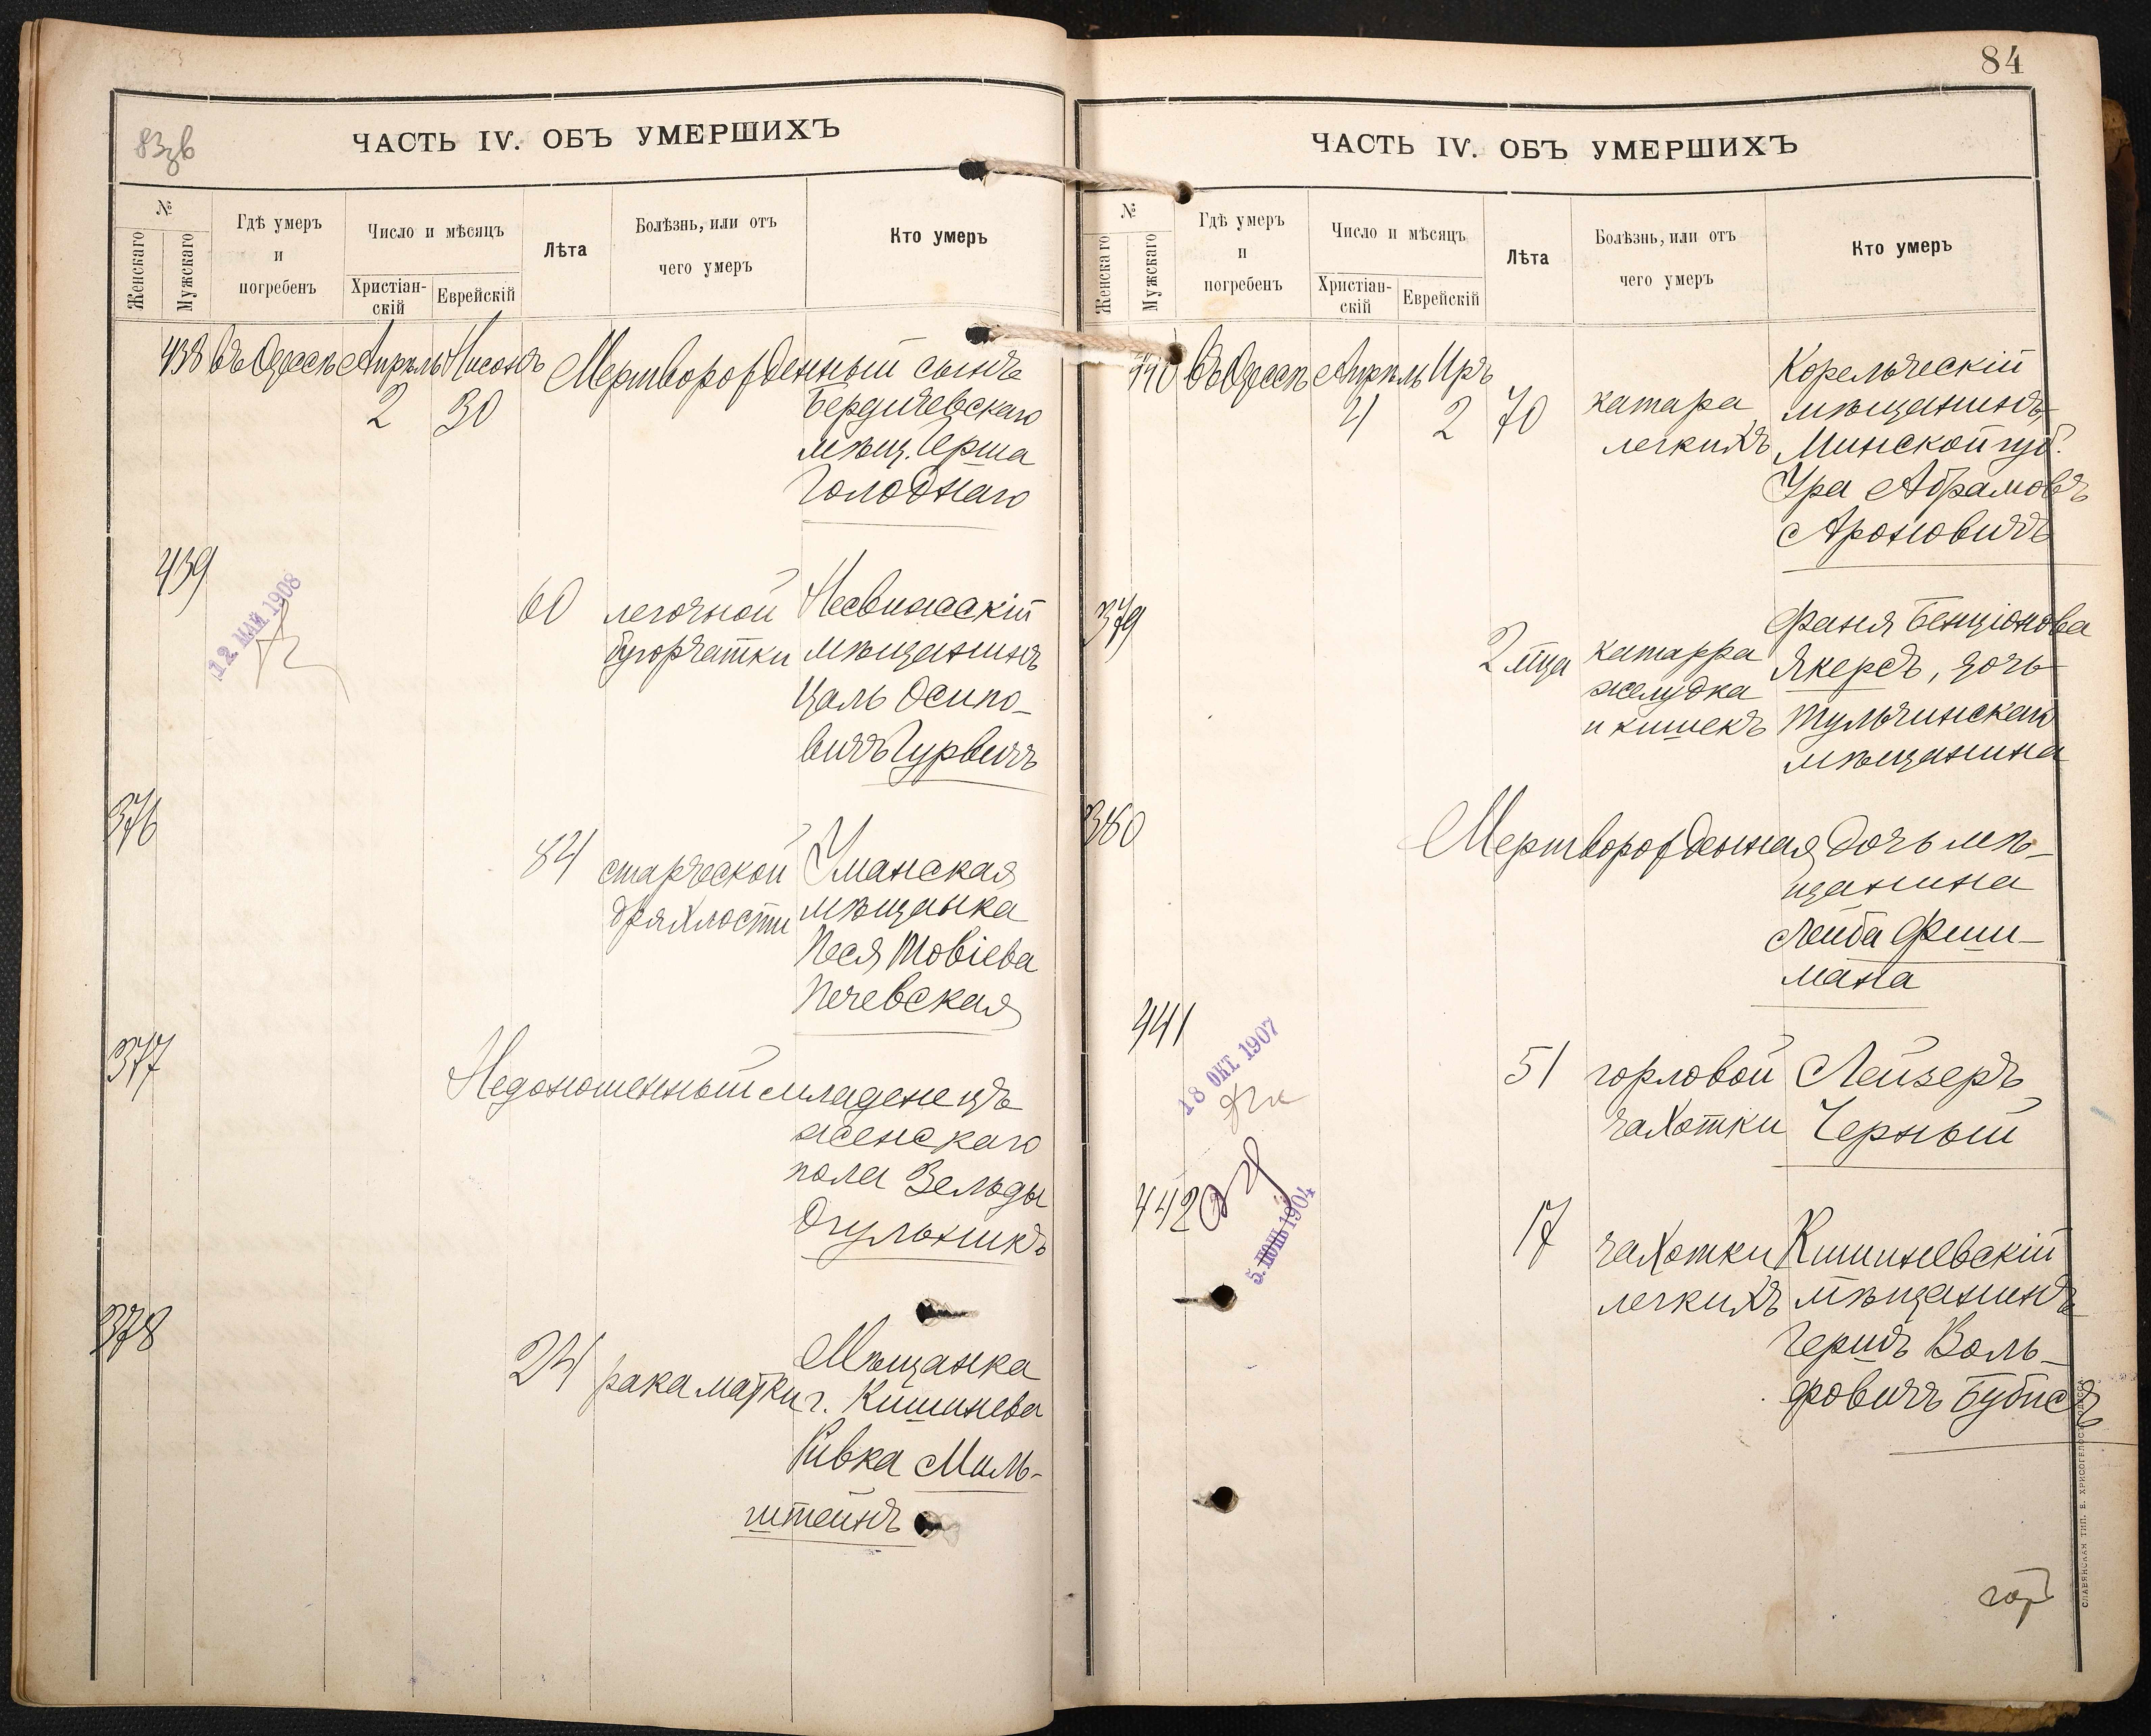 83зв
ЧАСТЬ IV. ОБЪ УМЕРШИХЪ
№
Женскаго
Мужскаго
Гдѣ умеръ
и
погребенъ
Число и мѣсяцъ
Христіан-
скій
Еврейскій
Лѣта
Болѣзнь, или отъ
чего умеръ
Кто умеръ
438 въ Одессѣ Апрѣль Нисонъ Мертворожденный сынъ
2 30 Бердичевскаго
мѣщ. Герша
Голоднаго
439
12 МАЙ 1908
60 легочной Несвижскій
бугорчатки мѣщанинъ
Цаль Осипо-
вичъ Гурвичъ
376
84 старческой Уманская
дряхлости мѣщанка
Песя Товіева
Печевская
377
Недоношенный младенецъ
женскаго
пола Зельды
Огульникъ
378
24 рака матки Мѣщанка
г. Кишинева
Ривка Миль-
штейнъ
84
ЧАСТЬ IV. ОБЪ УМЕРШИХЪ
№
Женскаго
Мужскаго
Гдѣ умеръ
и
погребенъ
Число и мѣсяцъ
Христіан-
скій
Еврейскій
Лѣта
Болѣзнь, или отъ
чего умеръ
Кто умеръ
440 въ Одессѣ Апрѣль Иръ Корельческій
4 2 70 катара мѣщанинъ,
легкихъ Минской губ.
Ура Абрамовъ
Ароновичъ
379
Фаня Бенціонова
2 мца катарра Якеръ, дочь
желудка Тульчинскаго
и кишекъ мѣщанина
380
Мертворожденная дочь мѣ-
щанина
Лейба Фиш-
мана
441
18 ОКТ 1907
51 горловой Лейзеръ
чахотки Черный
442
5. 1904
17 чахотки Кишиневскій
легкихъ мѣщанинъ
Гершъ Воль-
фовичъ Бубисъ
СЛАВЯНСКАЯ ТИП. Е. ХРИСОГЕЛОСЪ, ОДЕССА.